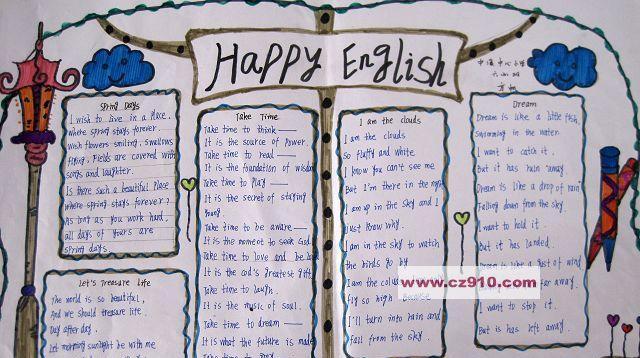 Happy English
Spring Days
I wish to live in a place.
where spring stays forever.
wish flowers smiling, swallows
flying, fields are covered with
songs and laughter.
Is there such a beautiful place
where spring stays forever?
As long as you work hard,
all days of yours are
spring days.
Let's Treasure Life
The world is so beautiful,
And we should treasure life.
Day after day.
Let morning sunlight be with me
Take Time
Take time to think——
It is the source of power.
Take time to read——
It is the foundation of wisdom
Take time to play——
It is the secret of staying
young.
Take time to be aware——
It is the moment to seek God.
Take time to love and be
It is the God's greatest gift.
Take time to laugh.
It is the music of soul.
Take time to dream——
It is what the future is made
Take time to pray
I am the clouds
I am the clouds
so fluffy and white
I know you can't see me
But I'm there in the night
I am up in the sky and I
just know why.
I am in the sky to watch
the birds go by
I am the
fly so high because
I'll turn into rain and
fall from the sky.
Dream
Dream is like a little fish
Swimming in the water.
I want to catch it.
But it has run away.
Dream is like a drop of rain
Falling down from the sky.
I want to hold it.
But it has landed.
Dream is like a gust of wind
far away.
I want to stop it.
But is has left away.
www.cz910.com